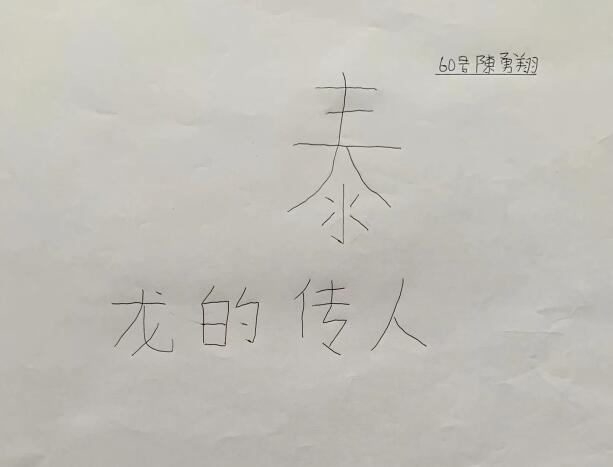 60号陳勇翔
泰
龙的传人